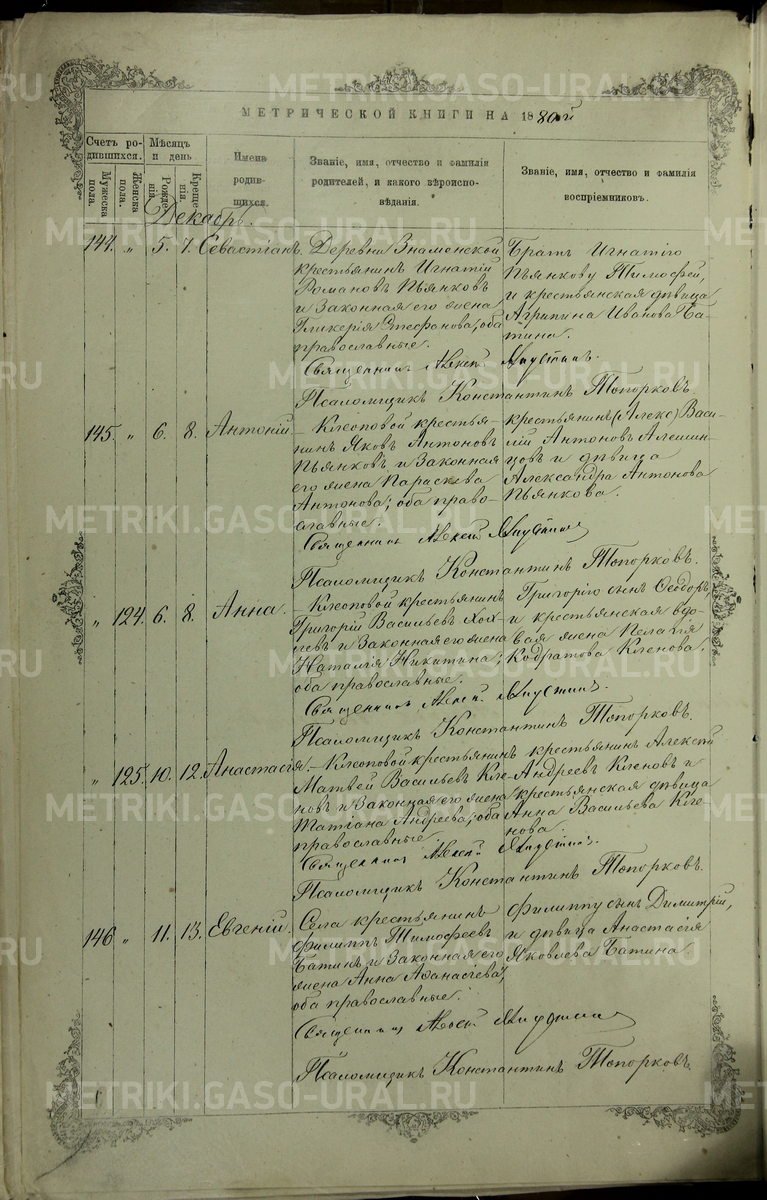 METRIKI.GASO-URAL.RU
МЕТРИЧЕСКОЙ КНИГИ НА 1880й
Счетъ родившихся.
Мужеска пола.
Женска пола.
Мѣсяцъ и день
Рожденія.
Крещенія.
Имена родившихся.
Званіе, имя, отчество и фамилія родителей, и какого вѣроисповѣданія.
Званіе, имя, отчество и фамилія воспріемниковъ.
Декабрь.
144. " 5. 7. Севастіанъ.
Деревни Знаменской
крестьянинъ Игнатій
Романовъ Пьянковъ
и законная его жена
Гликерія Стефанова; оба
православные.
Братъ Игнатію
Пьянкову Тимофей,
и крестьянская дѣвица
Агрипина Иванова Ба-
тина.
Священникъ Алексій
Псаломщикъ Константинъ Топорковъ.
145. " 6. 8. Антоній.
– Клеоповой крестья-
нинъ Яковъ Антоновъ
Пьянковъ и законная
его жена Параскева
Антонова; оба право-
славные.
крестьянинъ (Алекс) Васи-
лій Антоновъ Алешин-
цовъ и дѣвица
Александра Антонова
Пьянкова.
Священникъ Алексій
Псаломщикъ Константинъ Топорковъ.
" 124. 6. 8. Анна.
– Клеоповой крестьянинъ
Григорій Васильевъ
и законная его жена
Наталія Никитина;
оба православные.
Григорію сынъ Ѳеодоръ,
и крестьянская вдо-
вая жена Пелагія
Кодратова Кленова.
Священникъ Алексій
Псаломщикъ Константинъ Топорковъ.
" 125. 10. 12. Анастасія.
– Клеоповой крестьянинъ
Матвей Васильевъ Кле-
новъ и законная его жена
Татіана Андреева; оба
православные.
крестьянинъ Алексѣй
Андреевъ Кленовъ и
крестьянская дѣвица
Анна Васильева Кле-
нова.
Священникъ Алексій
Псаломщикъ Константинъ Топорковъ.
146 " 11. 13. Евгеній.
Села крестьянинъ
Филиппъ Тимофеевъ
Батинъ и законная его
жена Анна Аѳанасьева;
оба православные.
Филиппу сынъ Димитрій,
и дѣвица Анастасія
Яковлева Батина
Священникъ Алексій
Псаломщикъ Константинъ Топорковъ.